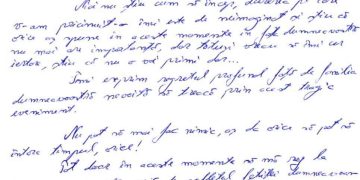 Nici nu știu cum să încep, durerea pe care
v-am pricinuit-o îmi este de neimaginat și știu că
orice aș spune în aceste momente în fața dumneavoastră
nu mai are importanță, dar totuși vreau să îmi cer
iertare, știu că nu o voi primi dar...
Îmi exprim regretul profund față de familia
dumneavoastră nevoită să treacă prin acest tragic
eveniment.
Nu pot să mai fac nimic, aș da orice să pot să
întorc timpul, orice!
Tot ce pot face în aceste momente să mă rog la
sufletul fetiței dumneavoas